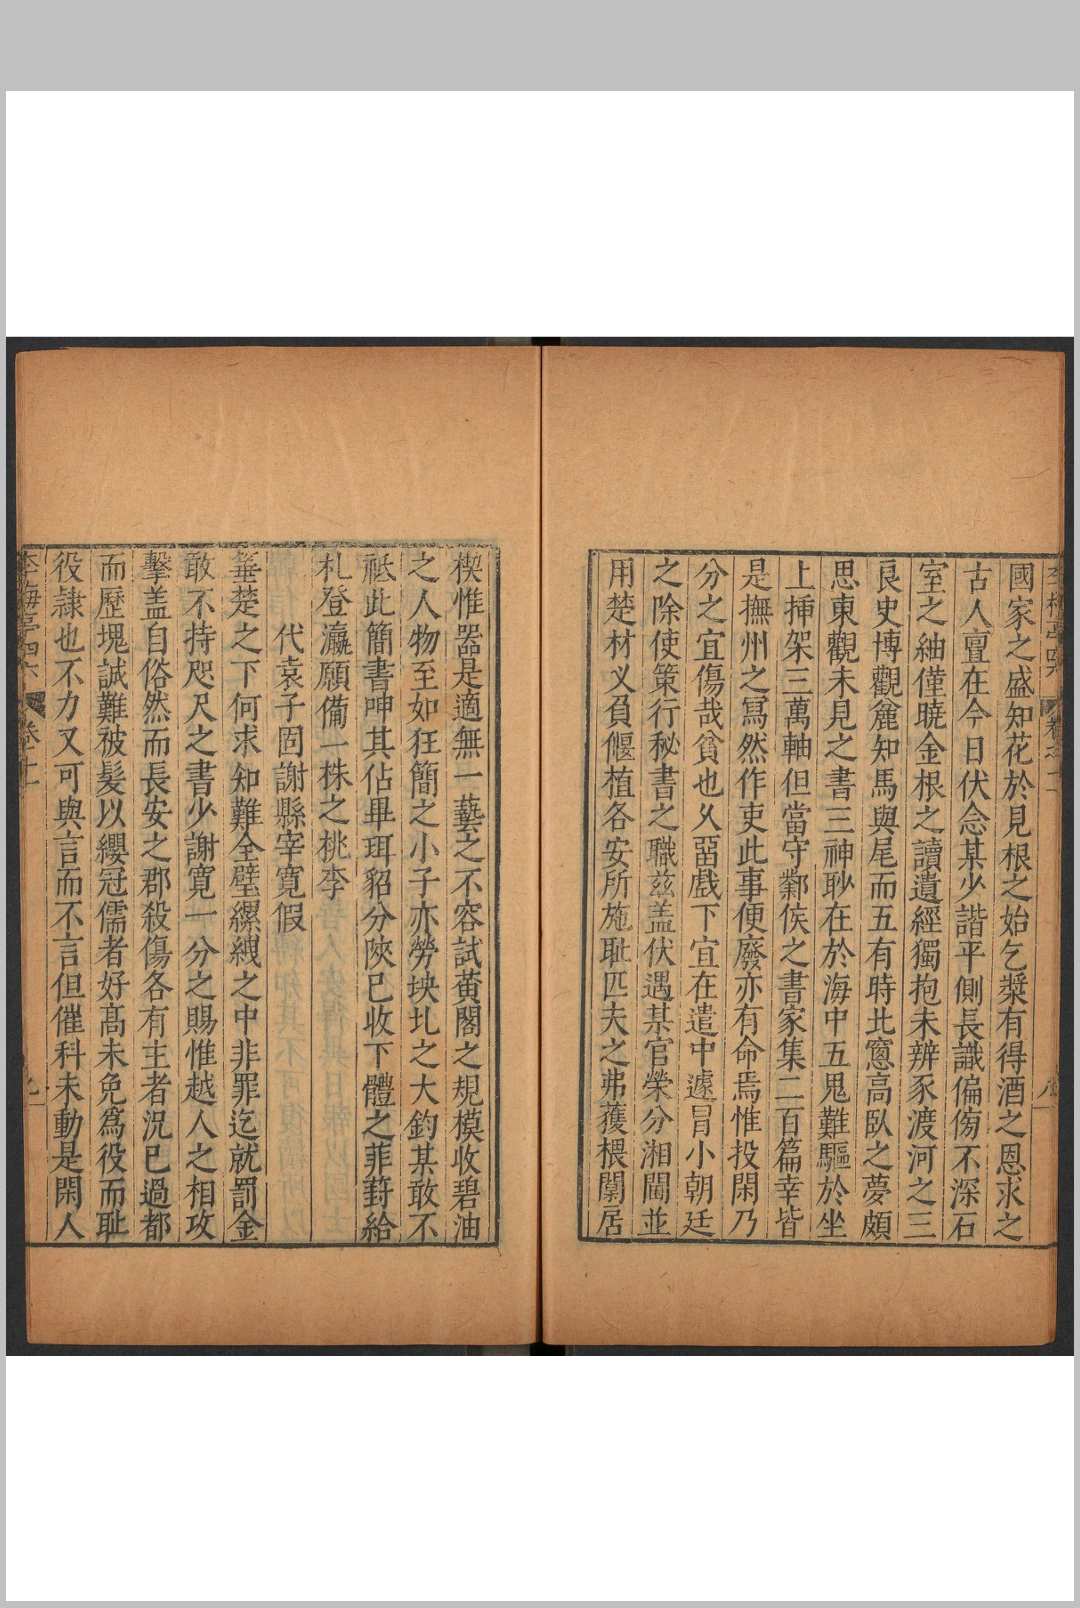 國家之盛知花於見根之始乞漿有得酒之恩求之
古人亶在今日伏念某少諧平側長識偏傍不深石
室之紬僅曉金根之讀遺經獨抱未辨豕渡河之三
良史博觀麄知馬與尾而五有時北窻高臥之夢頗
思東觀未見之書三神眇在於海中五鬼難驅於坐
上揷架三萬軸但當守鄴侯之書家集二百篇幸皆
是撫州之冩然作吏此事便廢亦有命焉惟投閑乃
分之宜傷哉貧也乆罶戲下宜在遣中遽冒小朝廷
之除使策行秘書之職兹盖伏遇某官榮分湘閫並
用楚材义負偃植各安所施耻匹夫之弗獲椳闑居
楔惟器是適無一藝之不容試黃閣之規模收碧油
之人物至如狂簡之小子亦勞坱圠之大鈞某敢不
祗此簡書呻其佔畢珥貂分陜已收下體之菲葑給
札登瀛願備一株之桃李
代袁子固謝縣宰寬假
箠楚之下何求知難全璧縲絏之中非罪迄就罰金
敢不持咫尺之書少謝寛一分之賜惟越人之相攻
擊盖自俗然而長安之郡殺傷各有主者況已過都
而歷塊誠難被髮以纓冠儒者好髙未免爲役而耻
役隷也不力又可與言而不言但催科未動是閑人
李梅亭四六 卷之十一 九